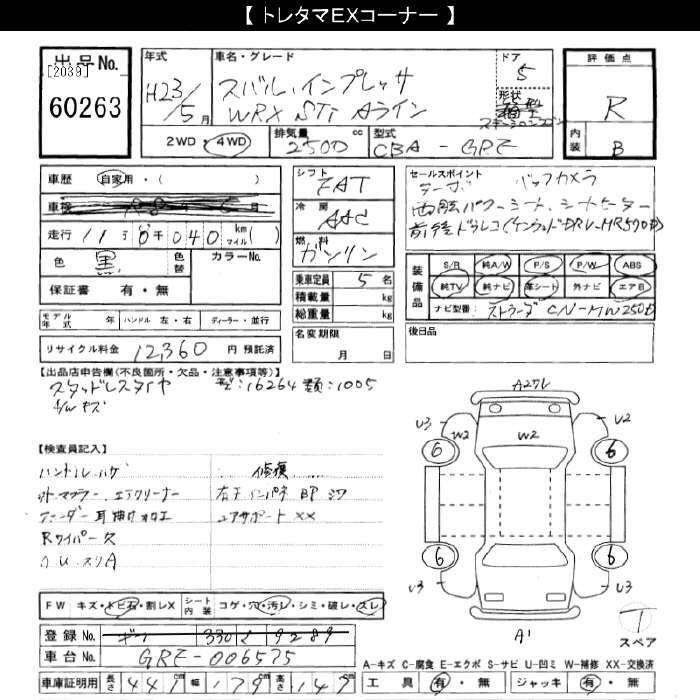 【 トレタマEXコーナー 】
出品No.
[2039]
60263
年式
H23/5月
車名・グレード
スバル インプレッサ
WRX STi Aライン
ドア
5
形状
ステーションワゴン
評価点
R
内装
B
2WD ・ 4WD
排気量 2500 cc
型式 CBA - GRF
車歴 自家用・( )
車検
走行 11万 0千 040 km マイル ( )
色 黒 色替 カラーNo.
保証書 有・無
モデル年式 年 ハンドル 左・右 ディーラー・並行
リサイクル料金 12,360 円 預託済
シフト
FAT
冷房
AAC
燃料
ガソリン
乗車定員 5 名
積載量 kg
総重量 kg
名変期限
月 日
セールスポイント
ターボ バックカメラ
両席パワーシート、シートヒーター
前後ドラレコ(ケンウッドDRV-MR570)
装備品
S/R 純A/W P/S P/W ABS
純TV 純ナビ 革シート 外ナビ エアB
ナビ型番 ストラーダ CN-MW250D
後日品
【出品店申告欄(不良箇所・欠品・注意事項等)】
スタッドレスタイヤ 型:16264 類:1005
A/Wキズ
【検査員記入】
ハンドルハゲ
外マフラー、エアクリーナー
フェンダー耳曲げ加工
Rワイパー欠
修復
右F インパネ BP シワ
コアサポート XX
A2マル
U3
U2
W2
W2
6
6
6
6
U3
U3
A1
T
スペア
FW キズ・トビ石・割レX
シート内装 コゲ・穴・汚レ・シミ・破レ・スレ
登録No. 330 9289
車台No. GRF-006575
A-キズ C-腐食 E-エクボ S-サビ U-凹ミ W-補修 XX-交換済
車庫証明用 長さ 441 cm 幅 179 cm 高さ 147 cm
工具 有・無 ジャッキ 有・無